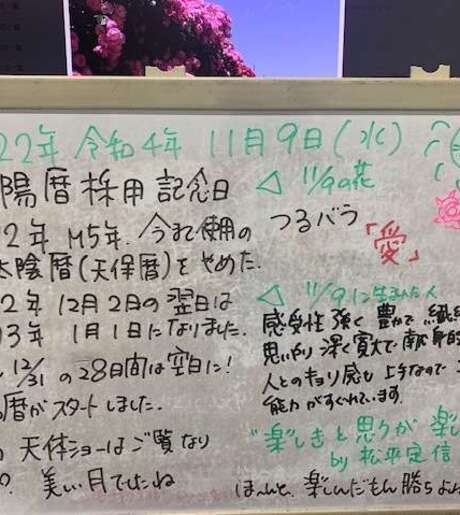 22年 令和4年 11月9日(水)
陽暦採用記念日
2年 M5年. 今まで使用の
太陰暦(天保暦)をやめた.
2年 12月2日の翌日は
3年 1月1日になりました.
12/31 の28日間は空白に!
暦がスタートしました.
天体ショーはご覧なり
? 美しい月でしたね
◁ 11/9の花
つるバラ
「愛」
◁ 11/9に生まれた人
感受性強く豊かで 繊細
思いやり深く寛大で献身的
人とのキョリ感も上手なので
能力がすぐれています.
"楽しきと思うが 楽
by 松平定信
ほーんと、楽しんだもん勝ちよ